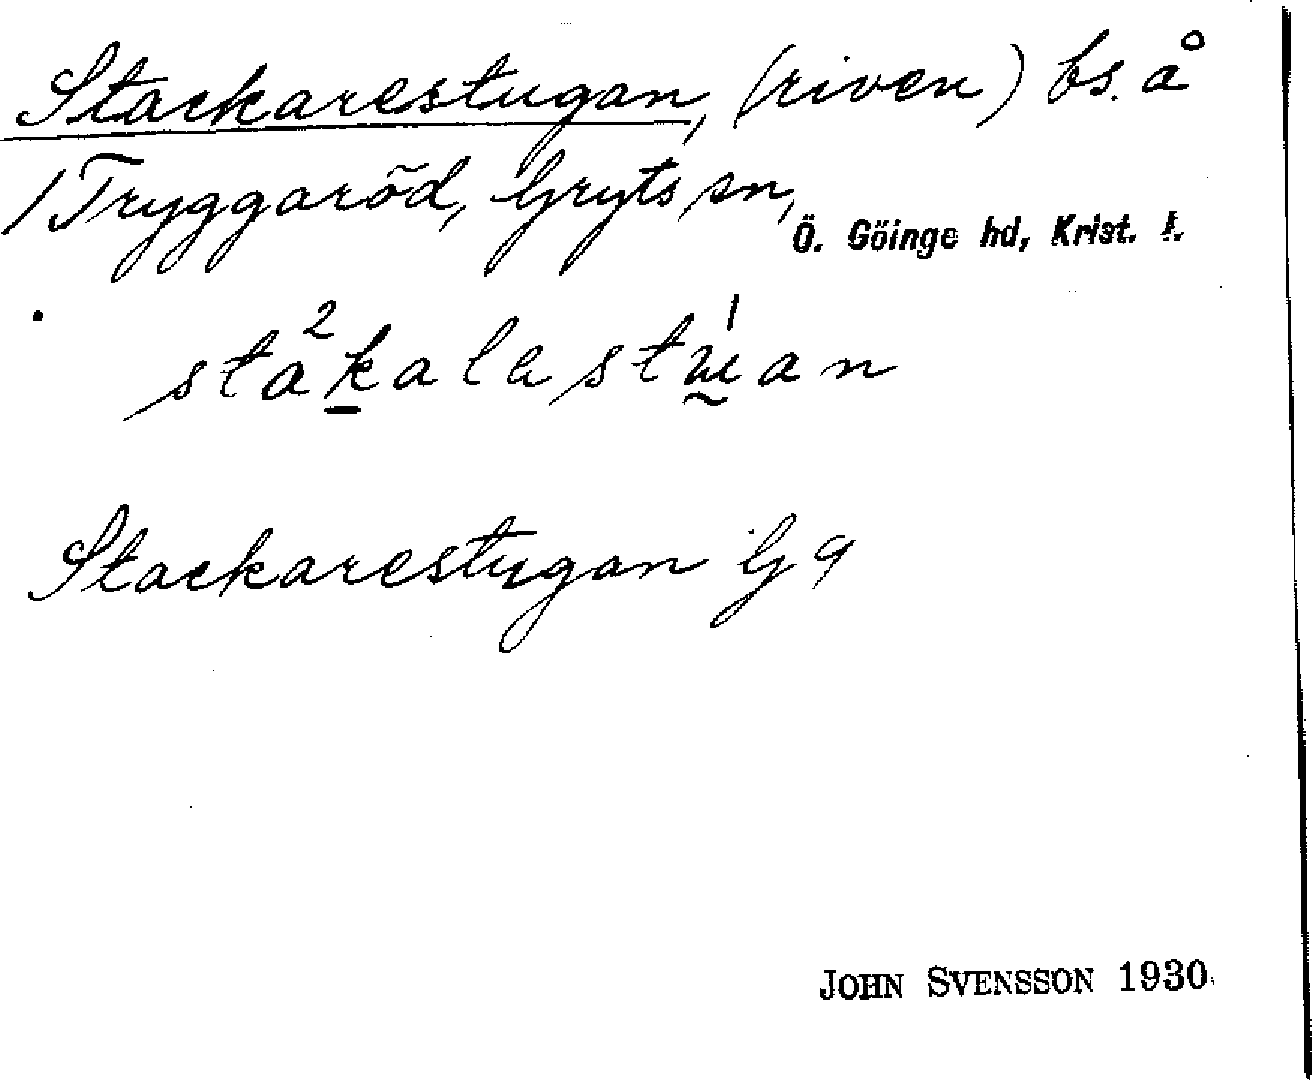 Stackarestugan, (riven) bs. å
/Tryggaröd, Gryts sn,
Ö. Göinge hd, Krist. l.
Stackarestugan G 9
JOHN SVENSSON 1930